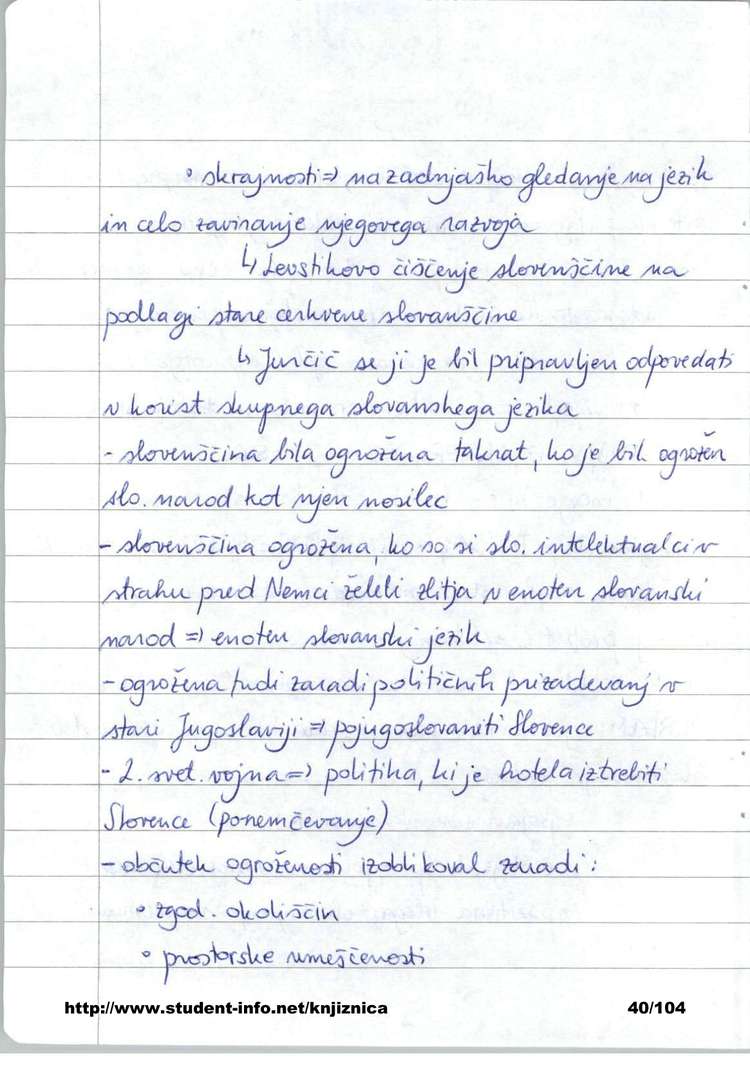 • skrajnosti => nazadnjaško gledanje na jezik
in celo zaviranje njegovega razvoja
↳ Levstikovo čiščenje slovenščine na
podlagi stare cerkvene slovanščine
↳ Jurčič se ji je bil pripravljen odpovedati
v korist skupnega slovanskega jezika
- slovenščina bila ogrožena takrat, ko je bil ogrožen
slo. narod kot njen nosilec
- slovenščina ogrožena, ko so si slo. intelektualci v
strahu pred Nemci želeli zlitja v enoten slovanski
narod => enoten slovanski jezik
- ogrožena tudi zaradi političnih prizadevanj v
stari Jugoslaviji => pojugoslovaniti Slovence
- 2. svet. vojna => politika, ki je hotela iztrebiti
Slovence (ponemčevanje)
- občutek ogroženosti izoblikoval zaradi:
• zgod. okoliščin
• prostorske umeščenosti
http://www.student-info.net/knjiznica 40/104